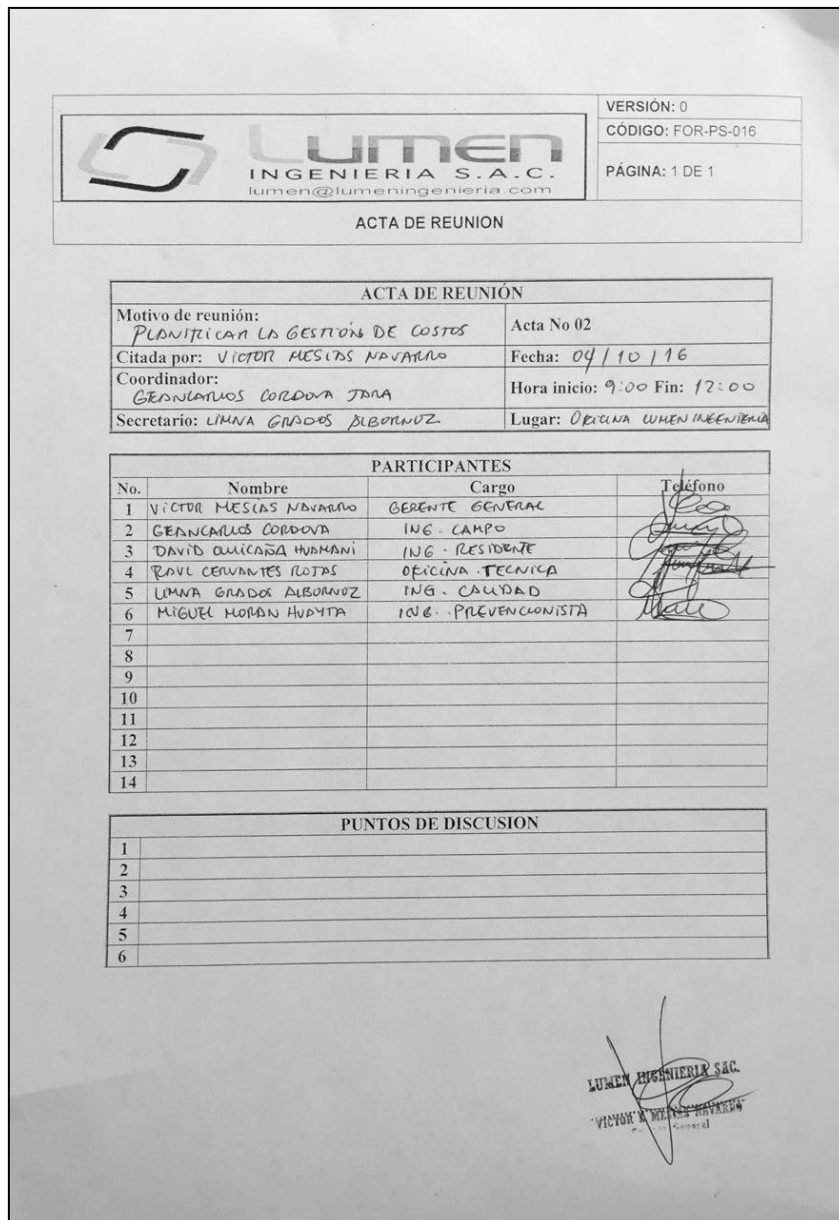 Lumen
INGENIERIA S.A.C.
lumen@lumeningenieria.com
VERSIÓN: 0
CÓDIGO: FOR-PS-016
PÁGINA: 1 DE 1
ACTA DE REUNION
ACTA DE REUNIÓN
Motivo de reunión:
PLANIFICAR LA GESTIÓN DE COSTOS
Acta No 02
Citada por: VICTOR MESIAS NAVARRO
Fecha: 04 / 10 / 16
Coordinador:
GEANCARLOS CORDOVA JARA
Hora inicio: 9:00 Fin: 12:00
Secretario: LIMNA GRADOS ALBORNOZ
Lugar: OFICINA LUMEN INGENIERIA
PARTICIPANTES
No. Nombre Cargo Teléfono
1 VICTOR MESIAS NAVARRO GERENTE GENERAL
2 GEANCARLOS CORDOVA ING. CAMPO
3 DAVID QUICAÑA HUAMANI ING. RESIDENTE
4 RAUL CERVANTES ROJAS OFICINA TECNICA
5 LIMNA GRADOS ALBORNOZ ING. CALIDAD
6 MIGUEL MORAN HUAYTA ING. PREVENCIONISTA
7
8
9
10
11
12
13
14
PUNTOS DE DISCUSION
1
2
3
4
5
6
LUMEN INGENIERIA SAC.
VICTOR NAVARRO
General